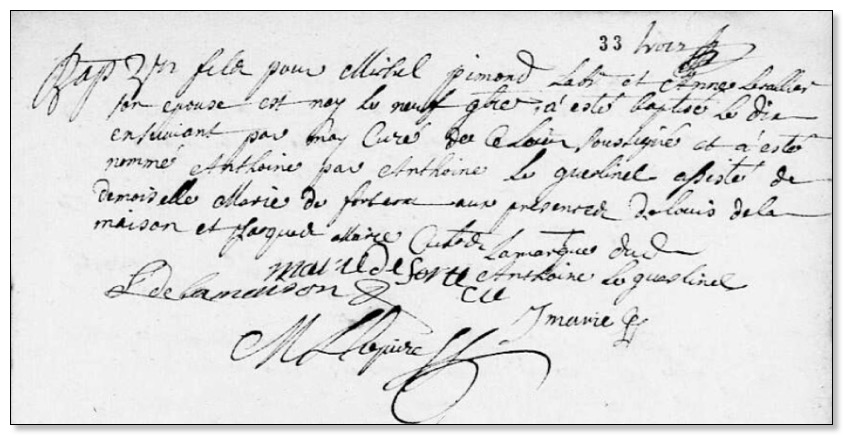 33 trois
Bap Un fils pour Michel pimond Lab^r et Anne Levallier
son epouse est nay le neuf 9bre, a'esté baptisé le dix
ensuivant par moy Curé de soussigné et a'esté
nommé Anthoine par Anthoine le guerlinel assisté de
demoiselle Marie de aux presences de louis dela
maison et Jacques marie Lamarque dud
marie de forte cu Anthoine le guerlinel
L delamaison
J marie
M Lepure